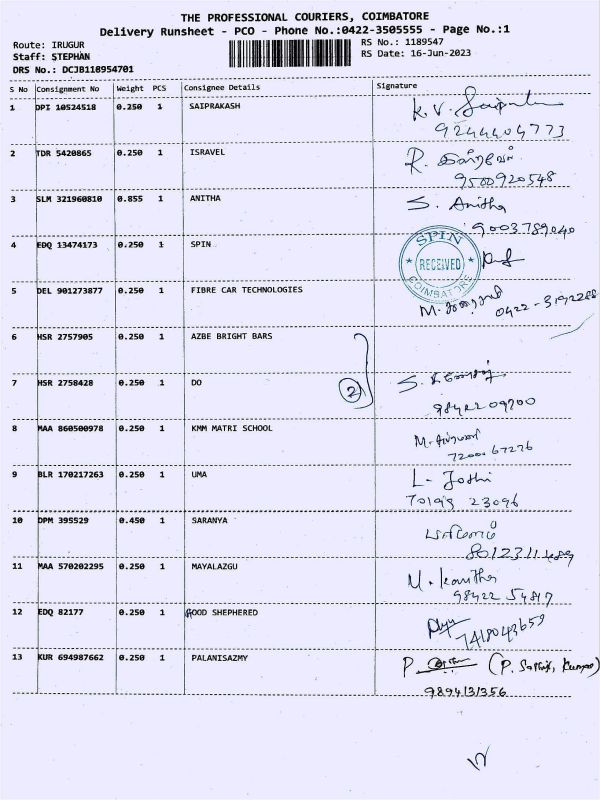 THE PROFESSIONAL COURIERS, COIMBATORE
Delivery Runsheet - PCO - Phone No.:0422-3505555 - Page No.:1
Route: IRUGUR RS No.: 1189547
Staff: STEPHAN RS Date: 16-Jun-2023
DRS No.: DCJB118954701
S No Consignment No Weight PCS Consignee Details Signature
1 DPI 10524518 0.250 1 SAIPRAKASH K.V.
9244404773
2 TDR 5420865 0.250 1 ISRAVEL R.
9500920548
3 SLM 321960810 0.855 1 ANITHA S. Anitha
9003789040
4 EDQ 13474173 0.250 1 SPIN SPIN RECEIVED COIMBATORE
5 DEL 901273877 0.250 1 FIBRE CAR TECHNOLOGIES M.
6 HSR 2757905 0.250 1 AZBE BRIGHT BARS
7 HSR 2758428 0.250 1 DO 2 S.
9842209700
8 MAA 860500978 0.250 1 KMM MATRI SCHOOL M.
7200067276
9 BLR 170217263 0.250 1 UMA L. Joshi
23096
10 DPM 395529 0.450 1 SARANYA
11 MAA 570202295 0.250 1 MAYALAZGU M. kavitha
98422 54817
12 EDQ 82177 0.250 1 GOOD SHEPHERED
7418043659
13 KUR 694987662 0.250 1 PALANISAZMY P.
9894131356